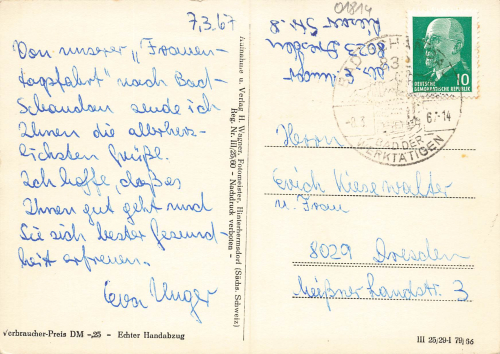 01814
7.3.67
Von unserer "Frauen-
tagsfahrt" nach Bad-
Schandau sende ich
Ihnen die allerherz-
lichsten Grüße.
Ich hoffe, daß es
Ihnen gut geht und
Sie sich bester Gesund-
heit erfreuen.
Eva Unger
Verbraucher-Preis DM -,25 - Echter Handabzug
Aufnahme u. Verlag H. Wagner, Fotomeister, Hinterhermsdorf (Sächs. Schweiz)
Reg. Nr. III/25/60 - Nachdruck verboten -
Abs. E. Unger
8023 Dresden
Str. 8
DEUTSCHE
DEMOKRATISCHE REPUBLIK
10
BAD DER
WERKTÄTIGEN
Herrn
Erich Kiesewalter
u. Frau
8029 Dresden
Meißner Landstr. 3
III 25/29-1 79/66